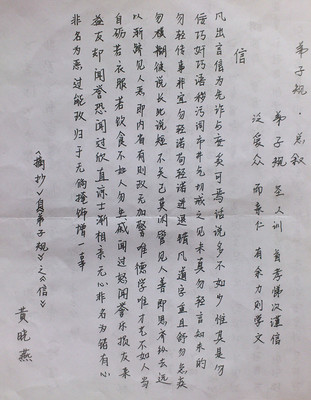 弟子规·总叙
弟子规 圣人训 首孝悌次谨信
泛爱众 而亲仁 有余力则学文
信
凡出言信为先诈与妄奚可焉话说多不如少惟其是勿
佞巧奸巧语秽污词市井气切戒之见未真勿轻言知未的
勿轻传事非宜勿轻诺苟轻诺进退错凡道字重且舒勿急疾
勿模糊彼说长此说短不关己莫闲管见人善即思齐纵去远
以渐跻见人恶即内省有则改无加警唯德学唯才艺不如人当
自砺若衣服若饮食不如人勿生戚闻过怒闻誉乐损友来
益友却闻誉恐闻过欣直谅士渐相亲无心非名为错有心
非名为恶过能改归于无倘掩饰增一辜
《摘抄》自弟子规》之《信》
黄晓燕